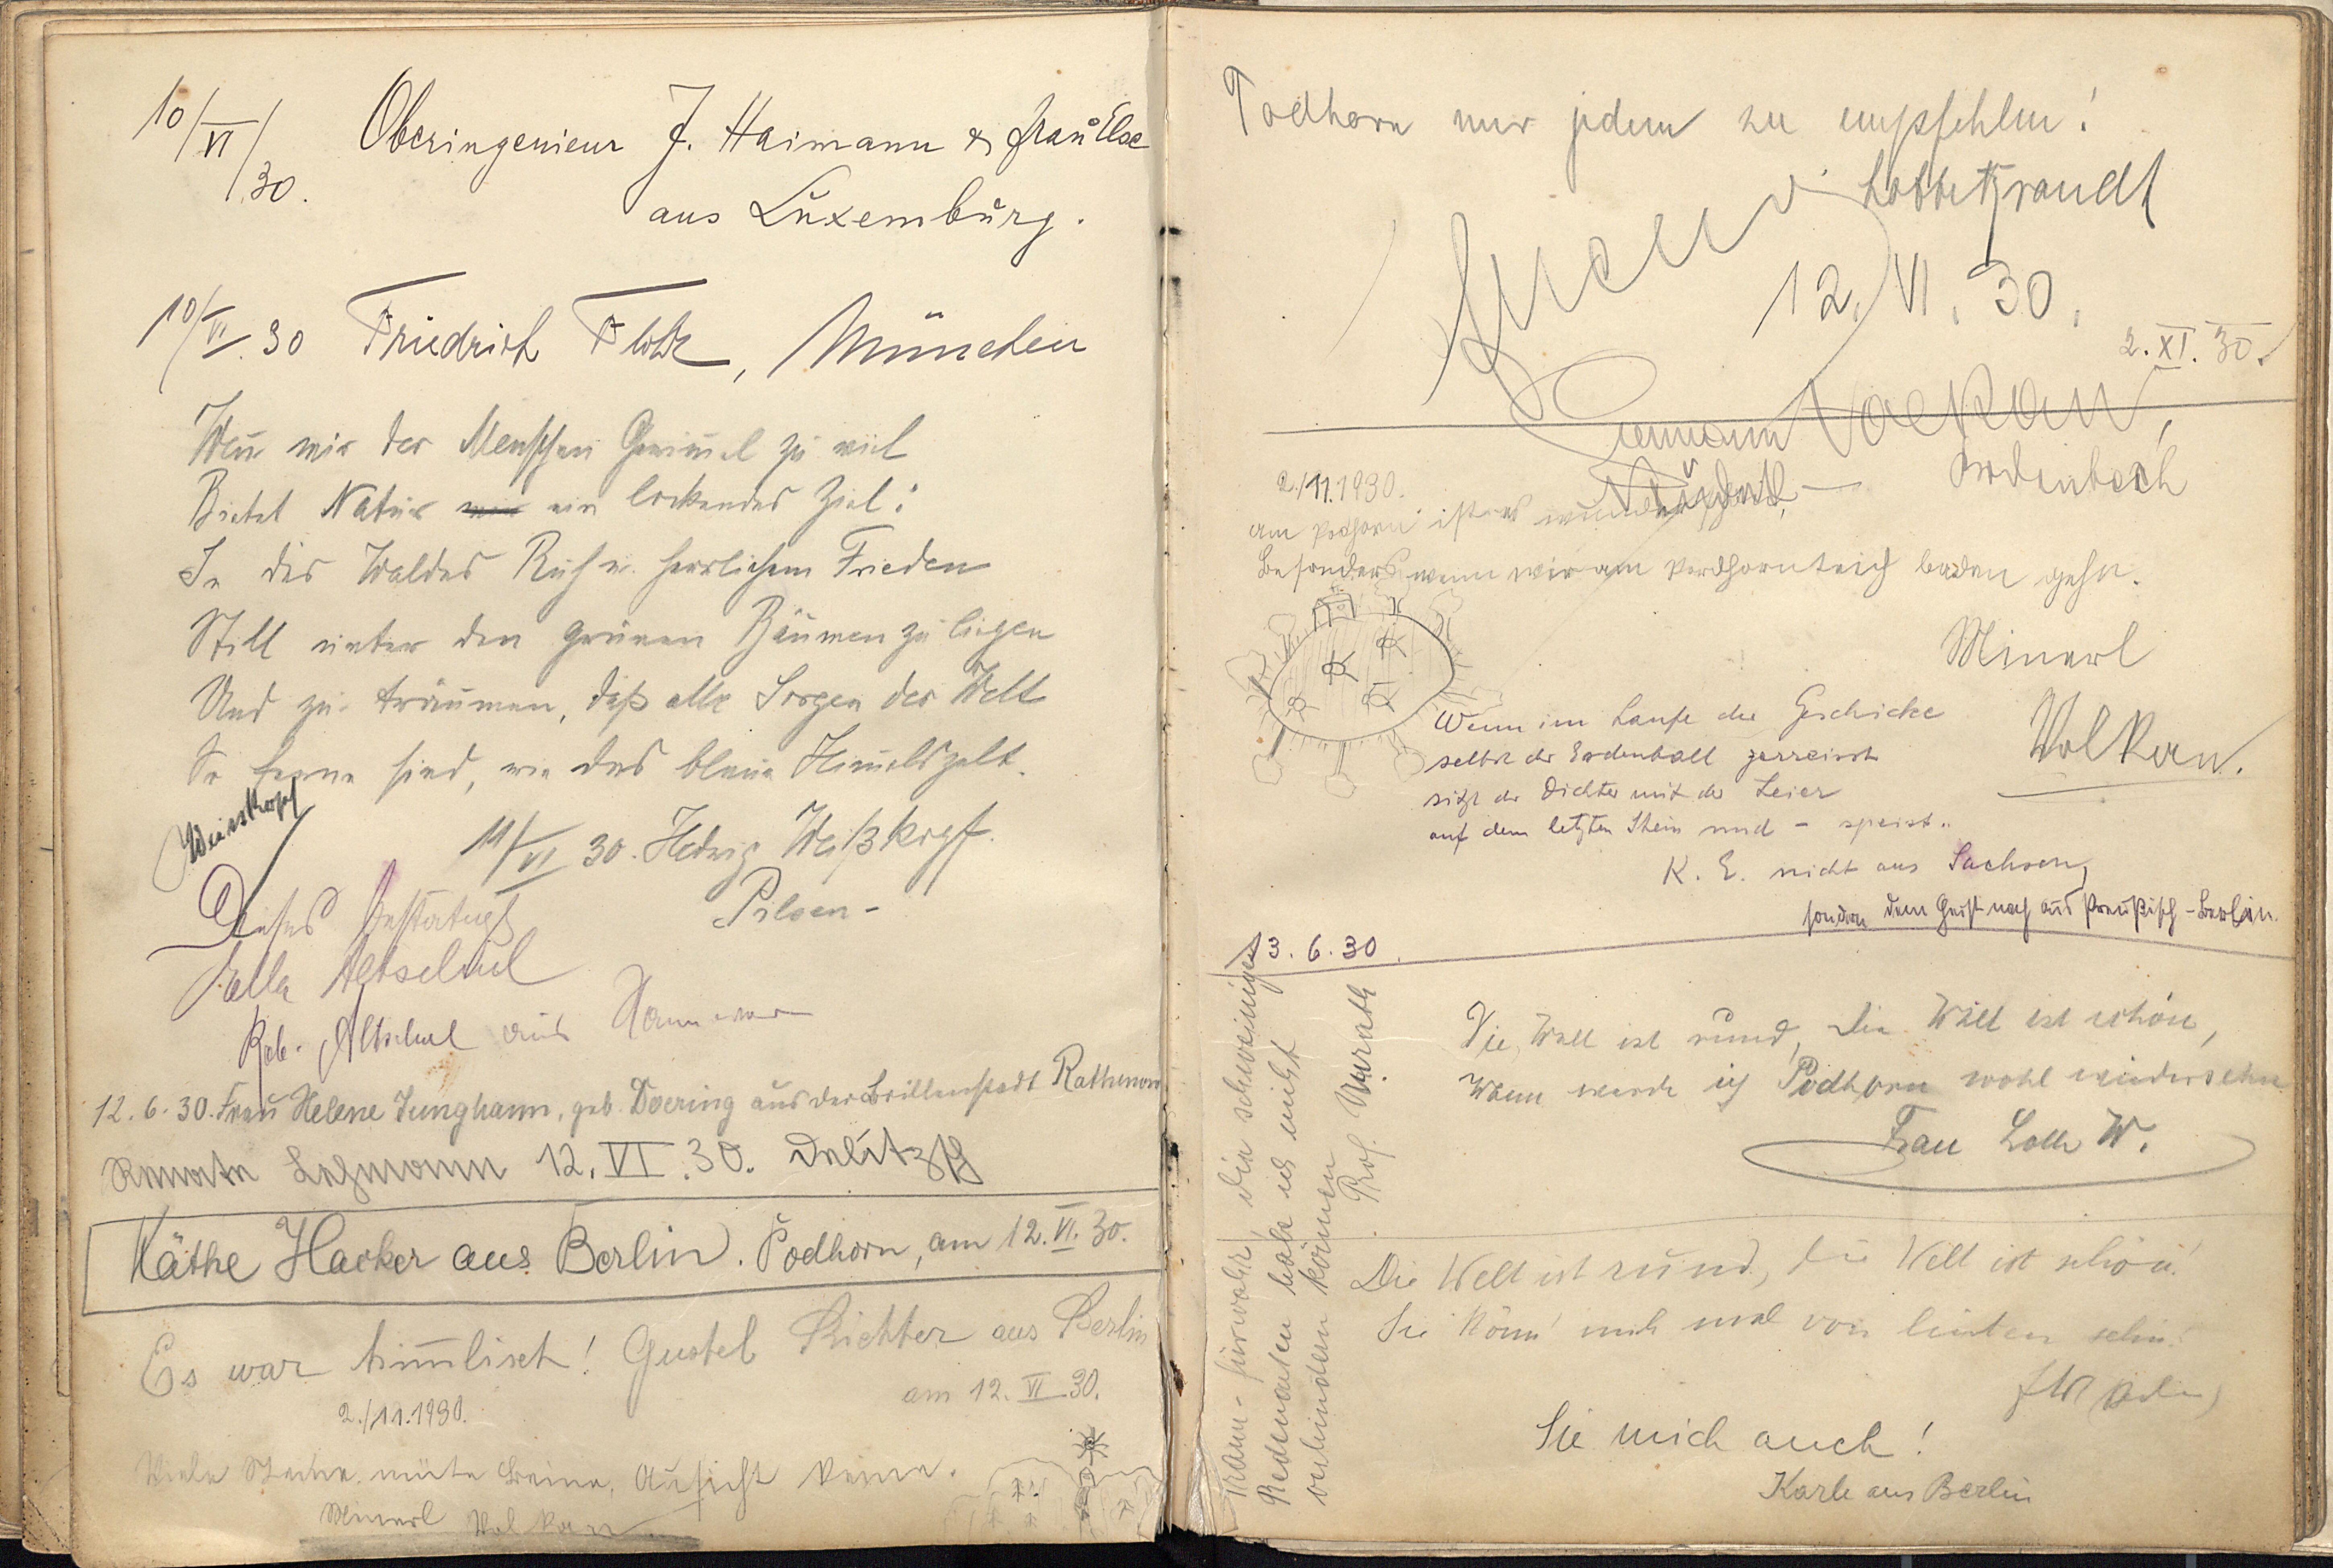 10/VI/30. Oberingenieur J. Haimann & Frau Else
aus Luxemburg.
10/VI. 30 Friedrich, München
Wenn mir der Menschen Gewimmel zu viel
Bietet Natur ein lockendes Ziel:
In des Waldes Ruh u. herrlichem Frieden
Still unter den grünen Bäumen zu liegen
Und zu träumen, daß alle Sorgen der Welt
So ferne sind, wie das blaue Himmelszelt.
11/VI 30. Hedwig Weißkopf.
Pilsen-
Weisskopf
Dieses bestätigt
Jella Altschul
Rob. Altschul aus Hannover
12. 6. 30. Frau Helene Junghann, geb. Doering aus der Brillenstadt Rathenow
Renate Lehmann 12. VI. 30. Delitzsch
Käthe Hacker aus Berlin. Podhorn, am 12. VI. 30.
Es war himmlisch! Gustel Richter aus Berlin
am 12. VI 30.
2./11.1930.
Viele Steine, müde Beine, Aussicht keine.
Minerl Volkan
Podhorn nur jedem zu empfehlen!
12. VI. 30.
2. XI. 30.
Hermann Volkan,
Bodenbach
2./11.1930.
Am Podhorn ist es wunderschön,
Besonders wenn wir am Podhornteich baden gehn.
Minerl
Volkan.
Wenn im Laufe der Geschicke
selbst der Erdenball zerreisst
sitzt der Dichter mit der Leier
auf dem letzten Stein und - speist..
K. E. nicht aus Sachsen,
sondern dem Geist nach aus Preußisch-Berlin.
13. 6. 30
Die Welt ist rund, die Welt ist schön,
Wann werde ich Podhorn wohl wiedersehn
Frau Lotte W.
Die Welt ist rund, die Welt ist schön!
Sie könn' mich mal von hinten sehn!
Sie mich auch!
Karle aus Berlin
fürwahr, die schweinigen
Redensarten hab ich nicht
verhindern können
Prof.